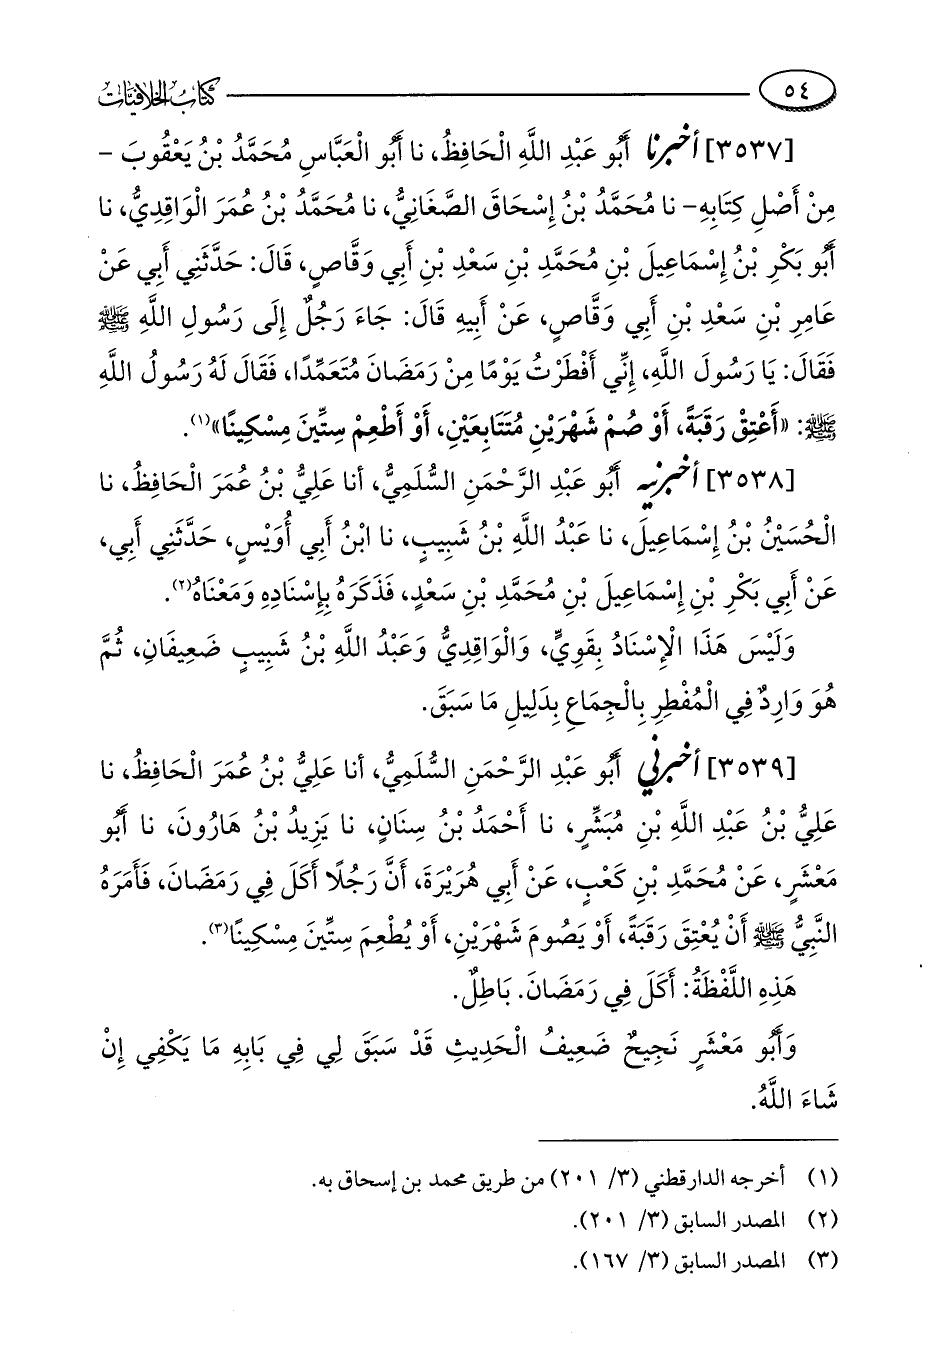 ٥٤ كتاب الخلافيات
[٣٥٣٧] أخبرنا أَبُو عَبْدِ اللَّهِ الْحَافِظُ، نا أَبُو الْعَبَّاسِ مُحَمَّدُ بْنُ يَعْقُوبَ -
مِنْ أَصْلِ كِتَابِهِ- نا مُحَمَّدُ بْنُ إِسْحَاقَ الصَّغَانِيُّ، نا مُحَمَّدُ بْنُ عُمَرَ الْوَاقِدِيُّ، نا
أَبُو بَكْرِ بْنُ إِسْمَاعِيلَ بْنِ مُحَمَّدِ بْنِ سَعْدِ بْنِ أَبِي وَقَّاصٍ، قَالَ: حَدَّثَنِي أَبِي عَنْ
عَامِرِ بْنِ سَعْدِ بْنِ أَبِي وَقَّاصٍ، عَنْ أَبِيهِ قَالَ: جَاءَ رَجُلٌ إِلَى رَسُولِ اللَّهِ ﷺ
فَقَالَ: يَا رَسُولَ اللَّهِ، إِنِّي أَفْطَرْتُ يَوْمًا مِنْ رَمَضَانَ مُتَعَمِّدًا، فَقَالَ لَهُ رَسُولُ اللَّهِ
ﷺ: «أَعْتِقْ رَقَبَةً، أَوْ صُمْ شَهْرَيْنِ مُتَتَابِعَيْنِ، أَوْ أَطْعِمْ سِتِّينَ مِسْكِينًا»(١).
[٣٥٣٨] أخبرنيه أَبُو عَبْدِ الرَّحْمَنِ السُّلَمِيُّ، أنا عَلِيُّ بْنُ عُمَرَ الْحَافِظُ، نا
الْحُسَيْنُ بْنُ إِسْمَاعِيلَ، نا عَبْدُ اللَّهِ بْنُ شَبِيبٍ، نا ابْنُ أَبِي أُوَيْسٍ، حَدَّثَنِي أَبِي،
عَنْ أَبِي بَكْرِ بْنِ إِسْمَاعِيلَ بْنِ مُحَمَّدِ بْنِ سَعْدٍ، فَذَكَرَهُ بِإِسْنَادِهِ وَمَعْنَاهُ(٢).
وَلَيْسَ هَذَا الْإِسْنَادُ بِقَوِيٍّ، وَالْوَاقِدِيُّ وَعَبْدُ اللَّهِ بْنُ شَبِيبٍ ضَعِيفَانِ، ثُمَّ
هُوَ وَارِدٌ فِي الْمُفْطِرِ بِالْجِمَاعِ بِدَلِيلِ مَا سَبَقَ.
[٣٥٣٩] أخبرني أَبُو عَبْدِ الرَّحْمَنِ السُّلَمِيُّ، أنا عَلِيُّ بْنُ عُمَرَ الْحَافِظُ، نا
عَلِيُّ بْنُ عَبْدِ اللَّهِ بْنِ مُبَشِّرٍ، نا أَحْمَدُ بْنُ سِنَانٍ، نا يَزِيدُ بْنُ هَارُونَ، نا أَبُو
مَعْشَرٍ، عَنْ مُحَمَّدِ بْنِ كَعْبٍ، عَنْ أَبِي هُرَيْرَةَ، أَنَّ رَجُلًا أَكَلَ فِي رَمَضَانَ، فَأَمَرَهُ
النَّبِيُّ ﷺ أَنْ يُعْتِقَ رَقَبَةً، أَوْ يَصُومَ شَهْرَيْنِ، أَوْ يُطْعِمَ سِتِّينَ مِسْكِينًا(٣).
هَذِهِ اللَّفْظَةُ: أَكَلَ فِي رَمَضَانَ. بَاطِلٌ.
وَأَبُو مَعْشَرٍ نَجِيحٌ ضَعِيفُ الْحَدِيثِ قَدْ سَبَقَ لِي فِي بَابِهِ مَا يَكْفِي إِنْ
شَاءَ اللَّهُ.
(١) أخرجه الدارقطني (٣/ ٢٠١) من طريق محمد بن إسحاق به.
(٢) المصدر السابق (٣/ ٢٠١).
(٣) المصدر السابق (٣/ ١٦٧).